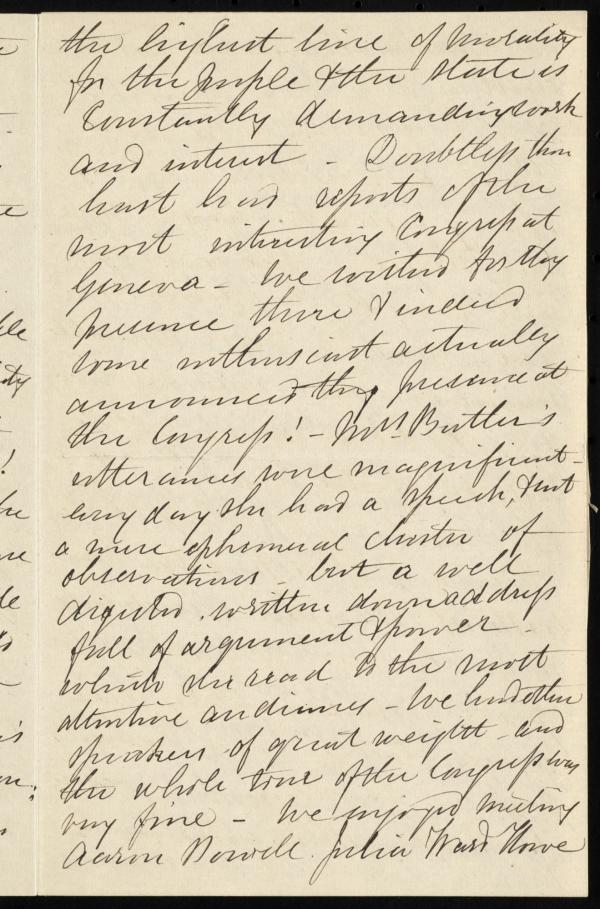 the highest line of morality
for the people & the state is
constantly demanding work
and interest - Doubtless thou
hast had reports of the
most interesting Congress at
Geneva - We wished for thy
presence there & indeed
some enthusiast actually
announced thy presence at
the Congress! - Mrs Butler's
utterances were magnificent -
every day she had a speech, & not
a mere ephemeral cluster of
observations - but a well
digested written down address
full of argument & power -
which she read to the most
attentive audiences - We had other
speakers of great weight - and
the whole tone of the Congress was
very fine - We enjoyed meeting
Aaron Powell. Julia Ward Howe